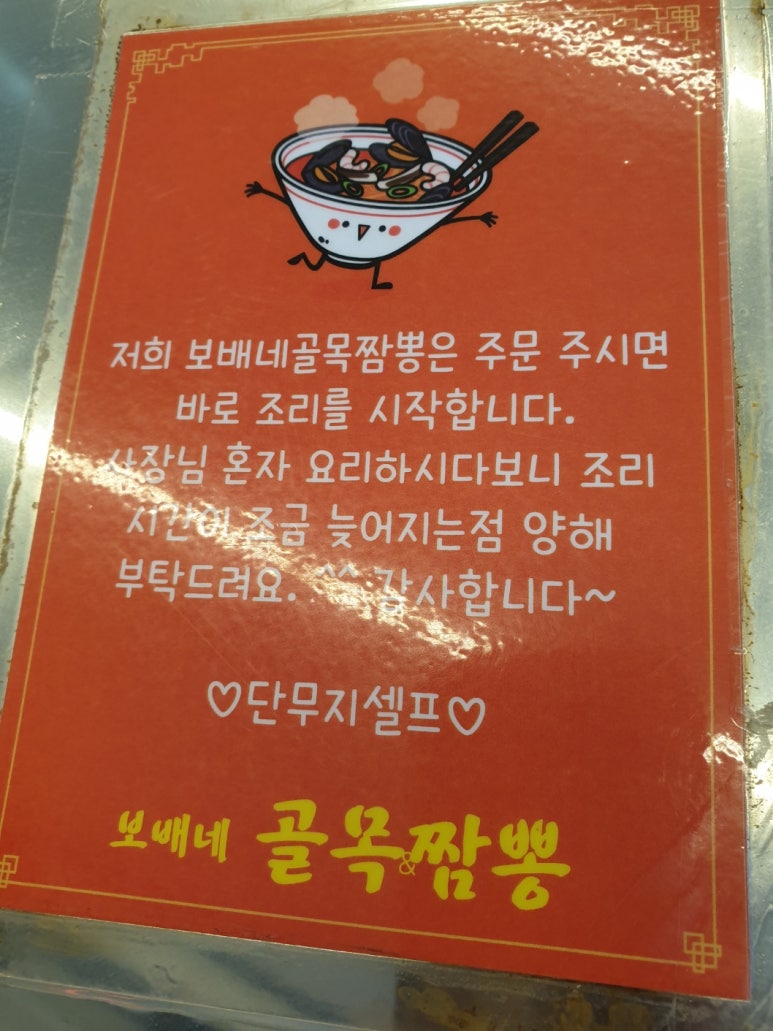 저희 보배네골목짬뽕은 주문 주시면
바로 조리를 시작합니다.
사장님 혼자 요리하시다보니 조리
시간이 조금 늦어지는점 양해
부탁드려요. ^^ 감사합니다~
♡단무지셀프♡
보배네 골목&짬뽕